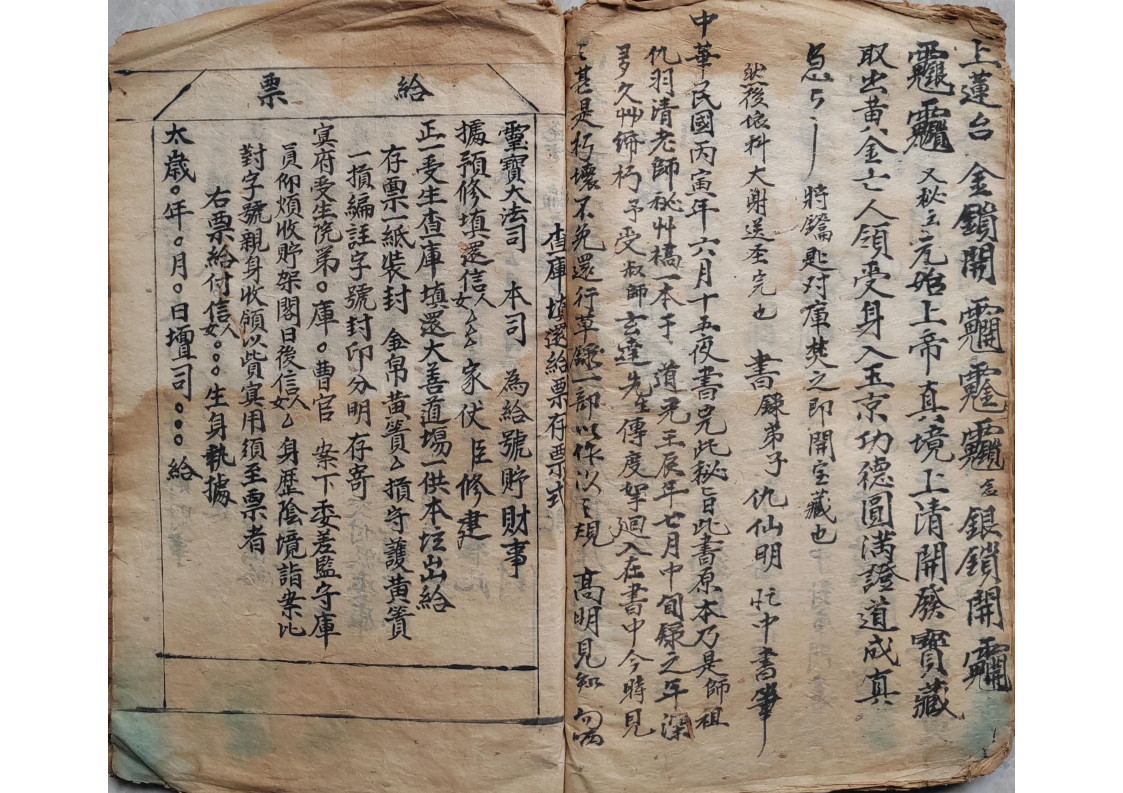 上蓮台 金鎖開 銀鎖開
又秘云元始上帝真境上清開發寶藏
取出黃金亡人領受身入玉京功德圓滿證道成真
急 將鑰匙对庫焚之即開宝藏也
然後依科大謝送圣完也 書錄弟子仇仙明 忙中書筆
中華民國丙寅年六月十五夜書完此秘旨此書原本乃是師祖
仇羽清老師秘艸稿一本于 道光壬辰年七月中旬錄之年深
多久艸縤朽予受叔師玄達先生傳度挐廻入在書中今時見
甚是朽壞不免還行草錄一部以作以之規 高明見知勿
查庫填還給票存票式
給票
靈寶大法司 本司 為給號貯財事
據預修填還信人女厶厶家伏臣修建
正一受生查庫填還大善道場一供本坛出給
存票一紙裝封 金帛黃簀厶損守護黃簀
一損編註字號封印分明存寄
冥府受生院第○庫○曹官 案下委差監守庫
員仰煩收貯架閣日後信人女厶身歴陰境詣案比
對字號親身收領以貲冥用須至票者
右票給付信人女○○○生身執據
太歲○年○月○日壇司○○○給